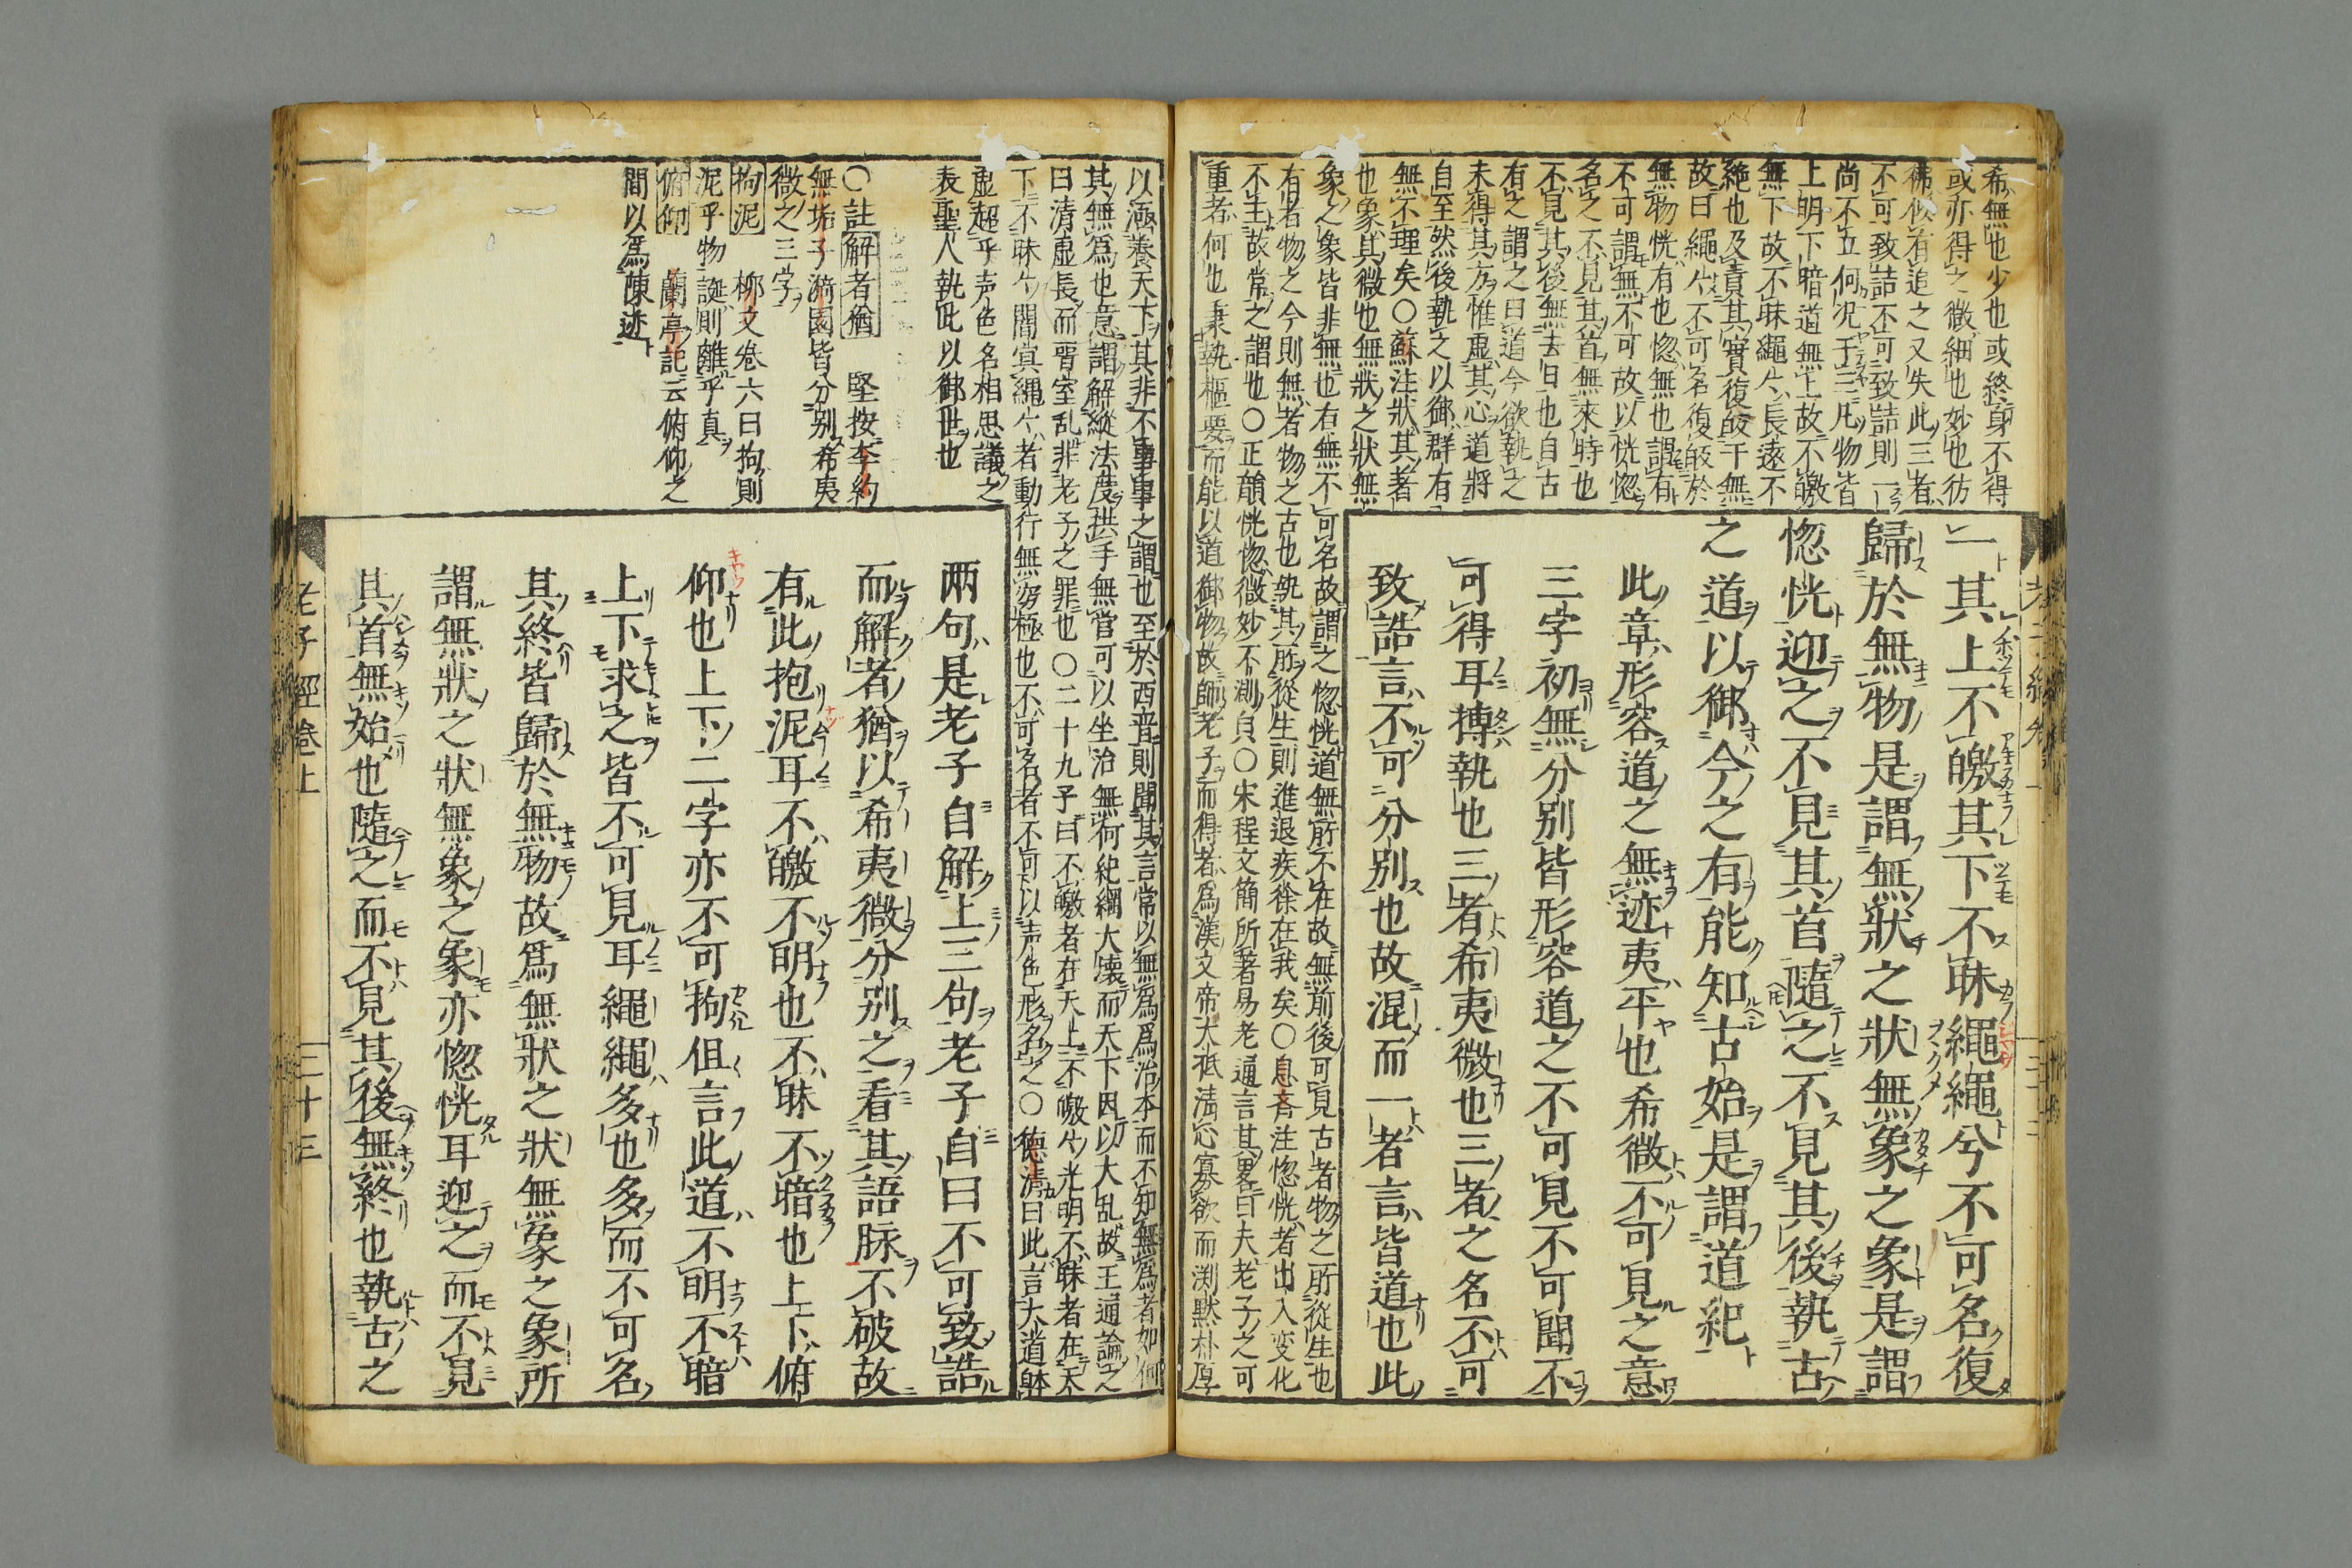 希無也少也或終身不得
或亦得之微細也妙也彷
彿似有追之又失此三者
不可致詰不可致詰則一
尚不立何况于三凡物皆
上明下暗道無上故不皦
無下故不昧繩〻長遠不
絶也及責其實復皈于無
故曰繩〻不可名復皈於
無物恍有也惚無也謂有
不可謂無不可故以恍惚
名之不見其首無來時也
不見其後無去日也自古
有之謂之曰道今欲執之
未得其方惟虛其心道將
自至然後執之以御群有
無不理矣○蘇注狀其著
也象其微也無狀之狀無
象之象皆非無也有無不可名故謂之惚恍道無所不在故無前後可見古者物之所從生也
有者物之今則無者物之古也執其所從生則進退疾徐在我矣○息斎注惚恍者出入変化
不主故常之謂也○正韻恍惚微妙不測皃○宋程文簡所著易老通言其畧曰夫老子之可
重者何也秉執樞要而能以道御物故師老子而得者為漢文帝大祗清心寡欲而渕黙朴厚
一其上不皦其下不昧繩繩兮不可名復
歸於無物是謂無狀之狀無象之象是謂
惚恍迎之不見其首隨之不見其後執古
之道以御今之有能知古始是謂道紀
此章形容道之無迹夷平也希微不可見之意
三字初無分别皆形容道之不可見不可聞不
可得耳摶執也三者希夷微也三者之名不可
致詰言不可分别也故混而一者言皆道也此
以涵養天下其非不事事之謂也至於西晋則聞其言常以無為為治本而不知無為者如何
其無為也意謂解縱法度拱手無営可以坐治無何紀綱大壊而天下因以大乱故王通論之
曰清虛長而晋室乱非老子之罪也○二十九子曰不皦者在天上不皦〻光明不昧者在天
下不昧〻闇冥繩〻者動行無窮極也不可名者不可以声色形名之○德清曰此言大道躰
虛超乎声色名相思議之
表聖人執此以御世也
○註解者猶 堅按李約
無垢子漪園皆分别希夷
微之三字
拘泥 柳文卷六曰拘則
泥乎物誕則離乎真
俯仰 蘭亭記云俯仰之
間以為陳迹
兩句是老子自解上三句老子自曰不可致詰
而解者猶以希夷微分别之看其語脉不破故
有此抱泥耳不皦不明也不昧不暗也上下俯
仰也上下二字亦不可拘但言此道不明不暗
上下求之皆不可見耳繩繩多也多而不可名
其終皆歸於無物故為無狀之狀無象之象所
謂無狀之狀無象之象亦惚恍耳迎之而不見
其首無始也隨之而不見其後無終也執古之
老子經卷上
三十三